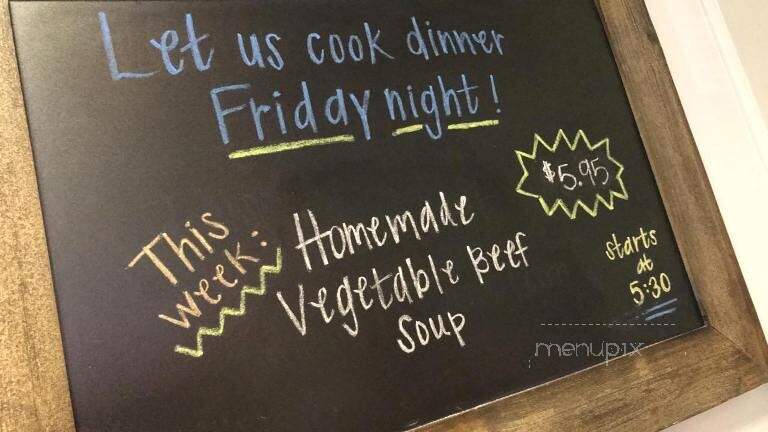 Let us cook dinner
Friday night!
$5.95
This
week:
Homemade
Vegetable Beef
Soup
starts
at
5:30
menupix